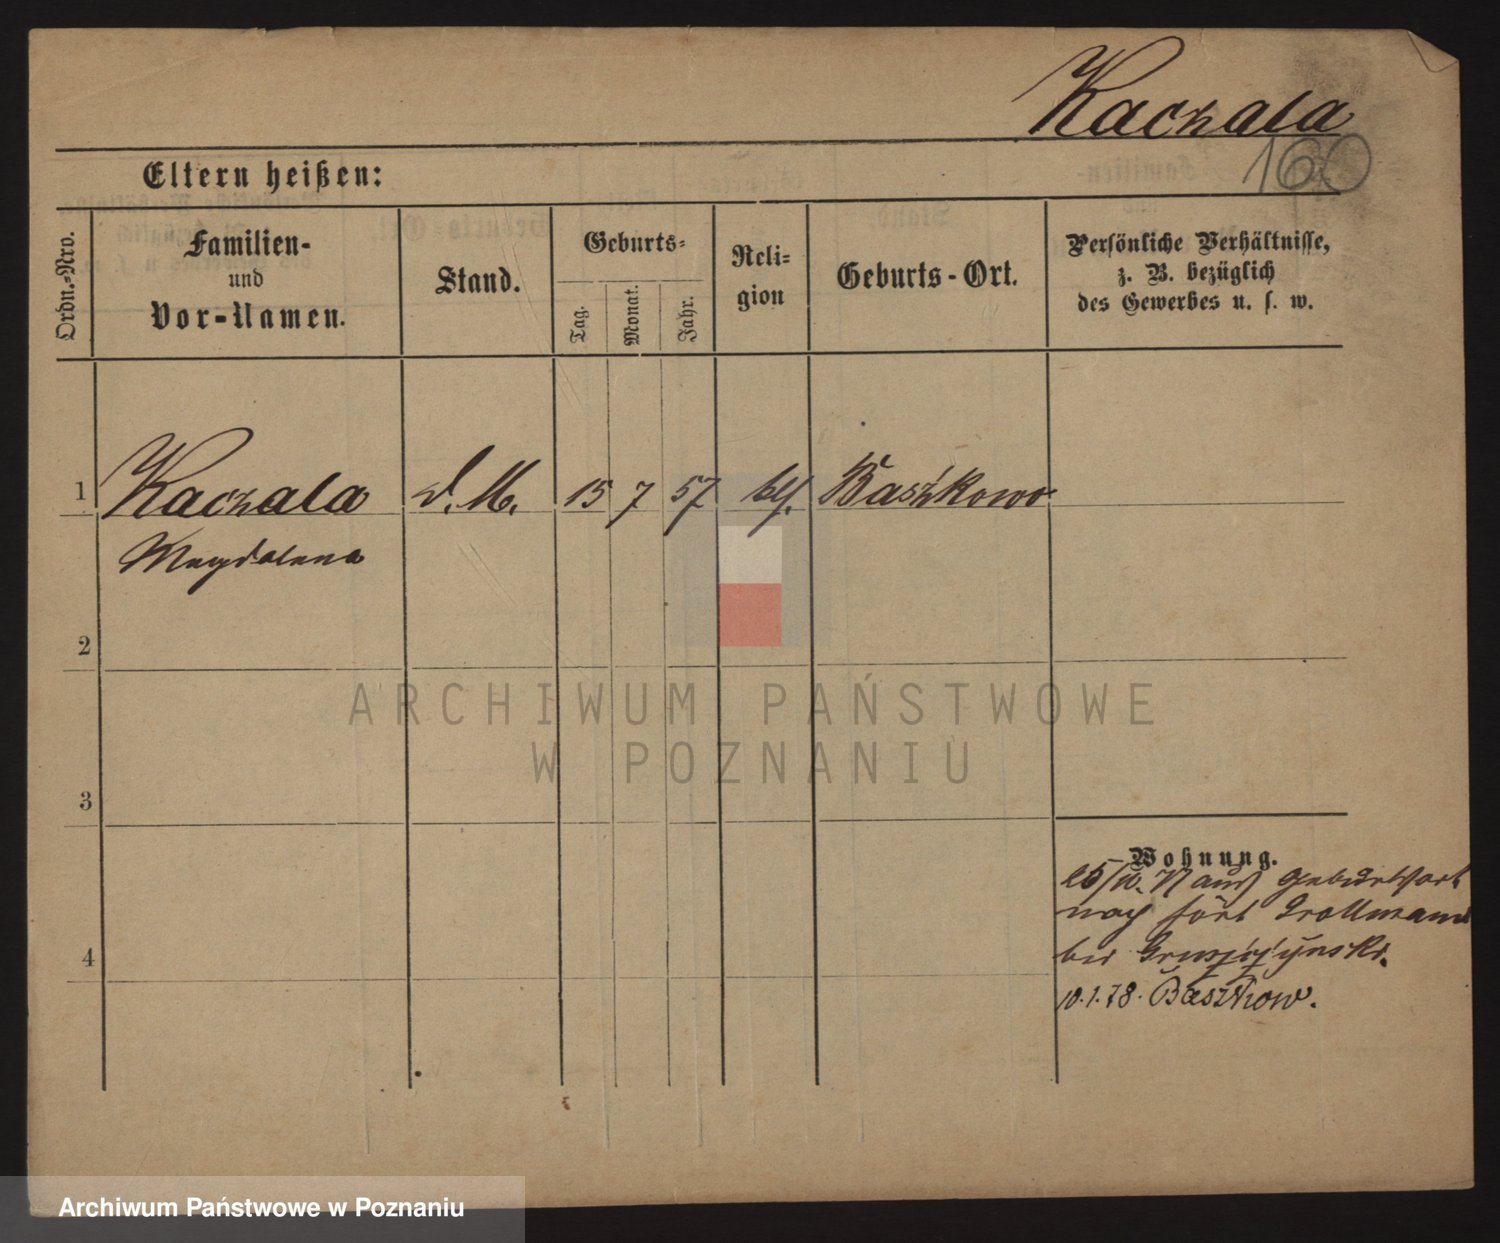 Kaczala
160
Eltern heißen:
Ordn.-Nro.
Familien-
und
Vor-Namen.
Stand.
Geburts-
Tag.
Monat.
Jahr.
Reli-
gion
Geburts-Ort.
Persönliche Verhältnisse,
z. B. bezüglich
des Gewerbes u. s. w.
1 Kaczala D. M. 15 7 57 Baszkowo
Magdalena
2
ARCHIWUM PAŃSTWOWE
W POZNANIU
3
Wohnung.
77 aus Geburtsort
nach fort
bei
4
10.1.78. Baszkow.
Archiwum Państwowe w Poznaniu